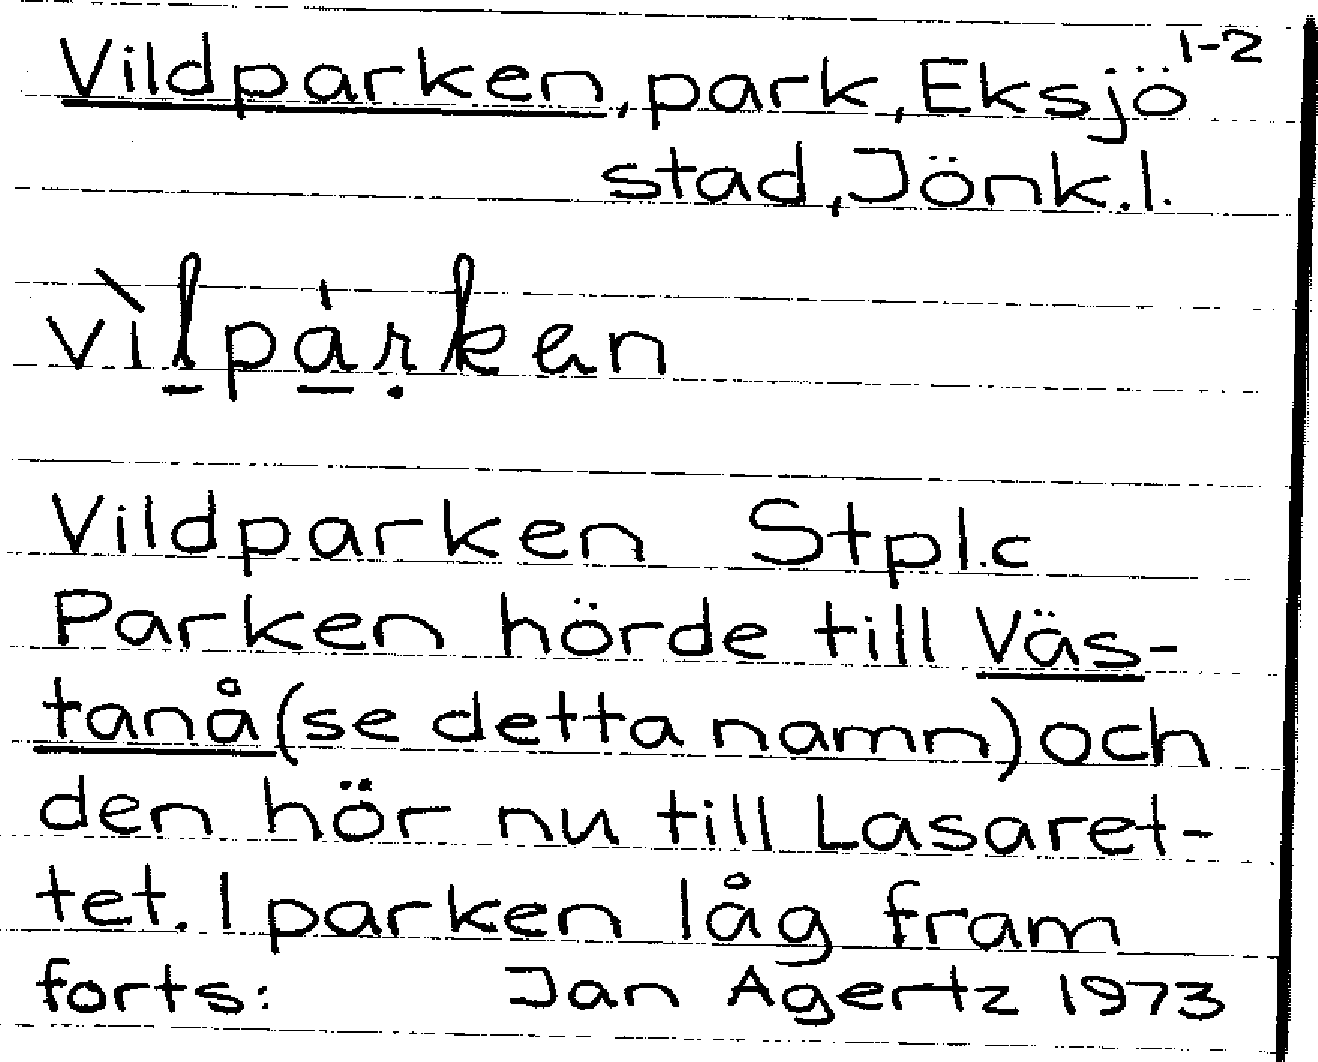 Vildparken, park, Eksjö 1-2
stad, Jönk.l.
vìl̠pa̠̍ṛken
Vildparken Stpl.c
Parken hörde till Väs-
tanå (se detta namn) och
den hör nu till Lasaret-
tet. I parken låg fram
forts: Jan Agertz 1973